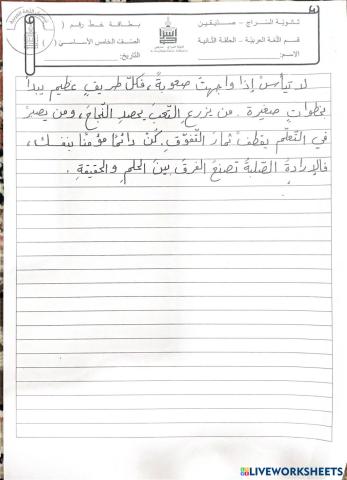 ثانوية السراج - صانيفين
قسم اللغة العربيّة - الحلقة الثّانية
الاسم:
بطاقة خط رقم ( )
الصّف الخامس الأساسيّ ( )
التّاريخ:
لا تيأسْ إذا واجهتَ صعوبةً، فكلّ طريقٍ عظيمٍ يبدأ
بخطواتٍ صغيرة. من يزرعِ التّعب يحصدِ النّجاحَ، ومن يصبرْ
في التّعلّمِ يقطفْ ثمارَ التّفوّقِ. كنْ دائمًا مؤمنًا بنفسك،
فالإرادةُ الصّلبةُ تصنعُ الفرقَ بينَ الحلمِ والحقيقةِ.
LIVEWORKSHEETS